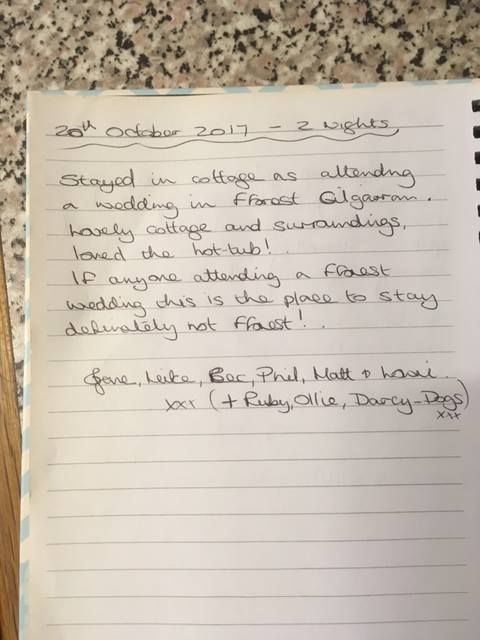 20th October 2017 - 2 Nights
Stayed in cottage as attending
a wedding in fforest Cilgarran.
Lovely cottage and surroundings,
loved the hot-tub!
If anyone attending a fforest
wedding this is the place to stay
definately not fforest!.
Jane, Luke, Bec, Phil, Matt +
xxx (+ Ruby, Ollie, Darcy - Dogs)
xxx